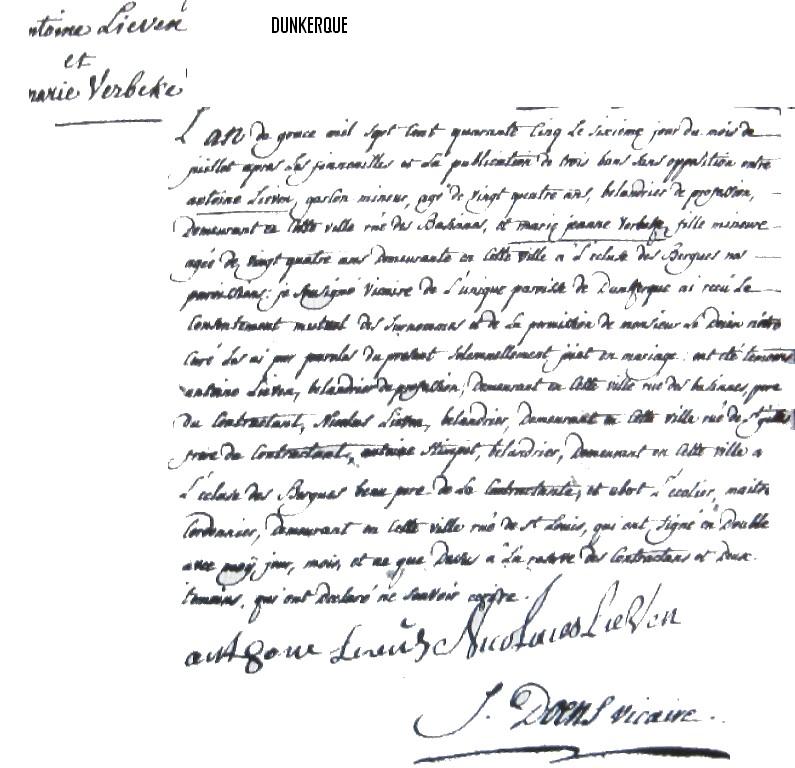 ntoine Lieven
et
marie Verbeke
DUNKERQUE
L'an de grace mil sept cent quarante cinq le sixieme jour du mois de
juillet apres les fiancailles et la publication de trois bans sans opposition entre
antoine Lieven, garson mineur, agé de vingt quatre ans, belandrier de profession,
demeurant en cette ville rue des Basinnes, et marie jeanne Verbeke, fille mineure
agée de vingt quatre ans demeurante en cette ville a l'ecluse des Bergues nos
paroissiens: je soussigné vicaire de l'unique paroisse de Dunkerque ai recu le
consentement mutuel des surnommes et de la permission de monsieur le Doien
curé les ai par paroles du present solemnellement joint en mariage: ont eté temoins
antoine Lieven, belandrier de profession, demeurant en cette ville rue des basinnes, pere
du Contractant, Nicolas Lieven, belandrier, demeurant en cette ville rue de St gilles
frere du Contractant, antoine Stimpol, belandrier, demeurant en cette ville a
l'ecluse des Bergues beau pere de la Contractante, et abert l'ecolier, maitre
Cordonnier, demeurant en cette ville rue de St Louis, qui ont signé en double
avec moÿ jour, mois, et an que dessus a la reserve des Contractans et deux
temoins, qui ont declaré ne savoir ecrire.
Nicolaies LieVen
J. Doens vicaire.